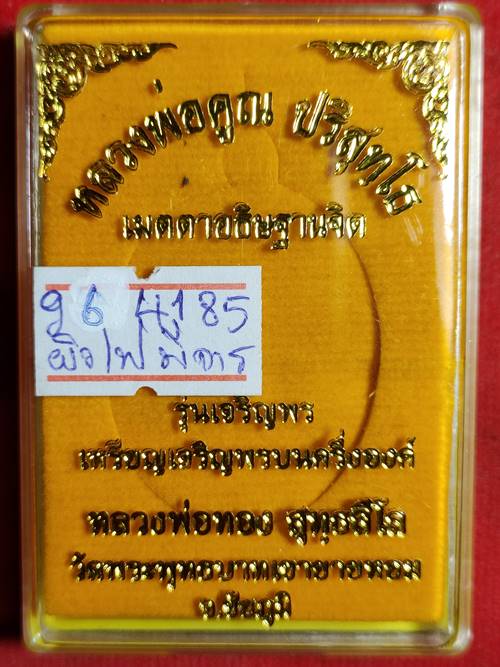 หลวงพ่อคูณ ปริสุทฺโธ
เมตตาอธิษฐานจิต
96 4185
ผิวไฟ มีจาร
รุ่นเจริญพร
เหรียญเจริญพรบนครึ่งองค์
หลวงพ่อทอง สุทฺธสีโล
วัดพระพุทธบาทเขายายหอม
จ.ชัยภูมิ